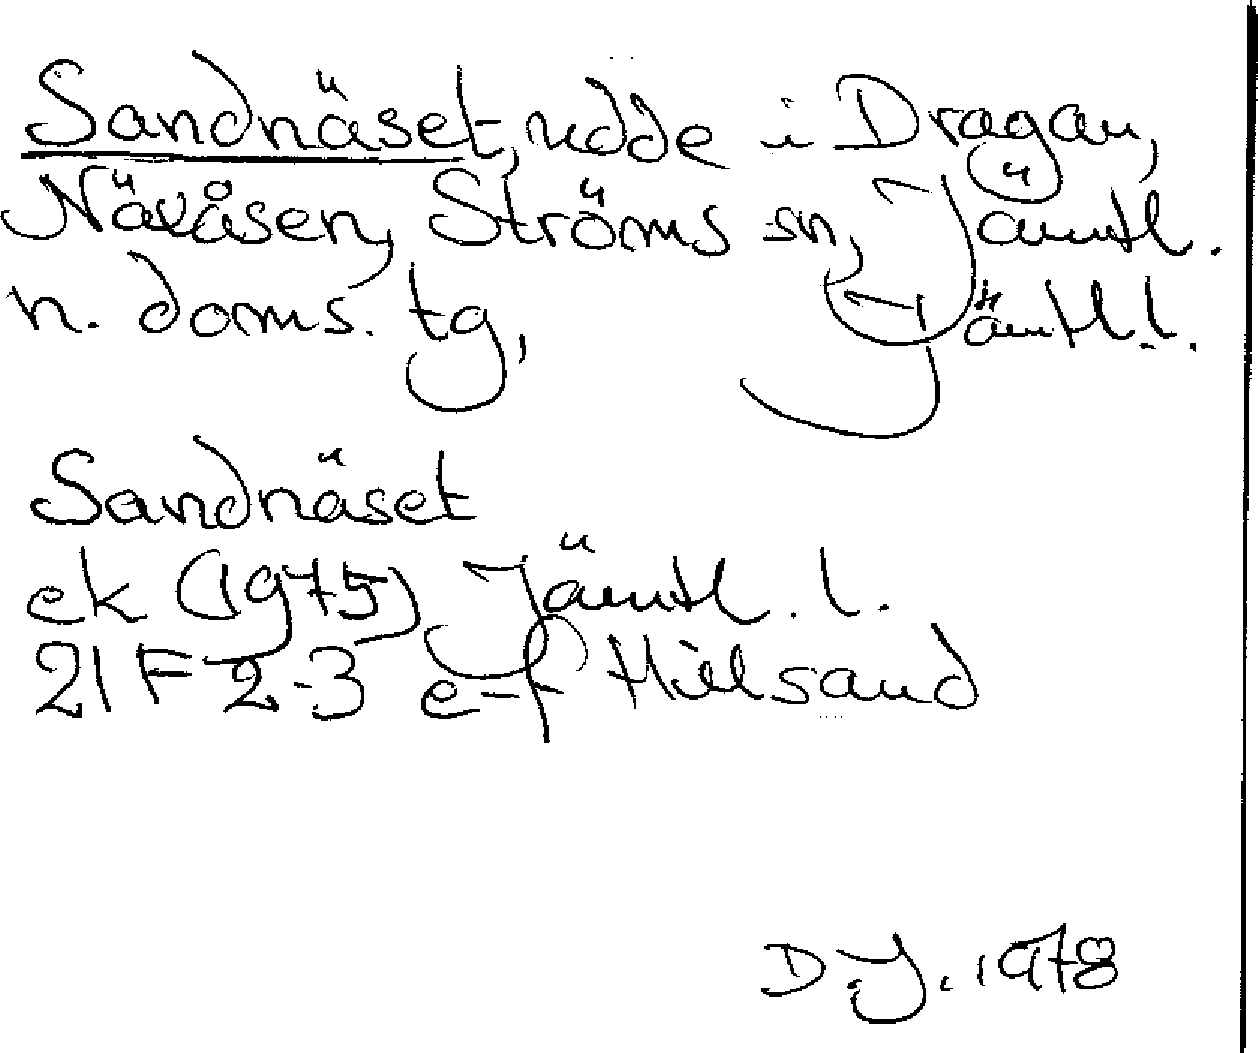 Sandnäset, udde i Dragan,
Näxåsen, Ströms sn, Jämtl.
n. doms. tg, Jämtl.l.
Sandnäset
ek (1975) Jämtl. l.
21 F 2-3 e-f Hillsand
D.J. 1978